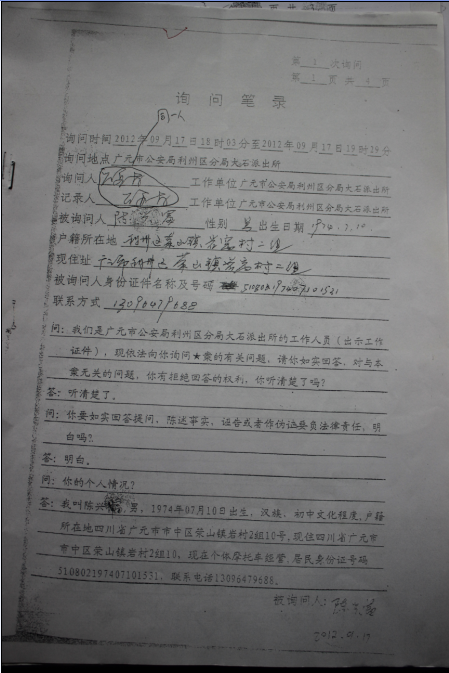 第 1 次询问
第 1 页 共 4 页
询问笔录
同一人
询问时间2012年09月17日18时03分至2012年09月17日19时19分
询问地点广元市公安局利州区分局大石派出所
询问人 工作单位广元市公安局利州区分局大石派出所
记录人 工作单位广元市公安局利州区分局大石派出所
被询问人 陈兴 性别 男 出生日期 1974.7.10
户籍所在地 利州区荣山镇岩窝村二组
现住址 广元市利州区荣山镇岩窝村二组
被询问人身份证件名称及号码 510802197407101531
联系方式 13096479688
问:我们是广元市公安局利州区分局大石派出所的工作人员(出示工作
证件),现依法向你询问★案的有关问题,请你如实回答,对与本
案无关的问题,你有拒绝回答的权利,你听清楚了吗?
答:听清楚了。
问:你要如实回答提问,陈述事实,诬告或者作伪证要负法律责任,明
白吗?
答:明白。
问:你的个人情况?
答:我叫陈兴 ,男,1974年07月10日出生,汉族,初中文化程度,户籍
所在地四川省广元市市中区荣山镇岩村2组10号,现住四川省广元市
市中区荣山镇岩村2组10。现在个体摩托车经营,居民身份证号码
510802197407101531,联系电话13096479688。
被询问人:陈兴
2012.9.17